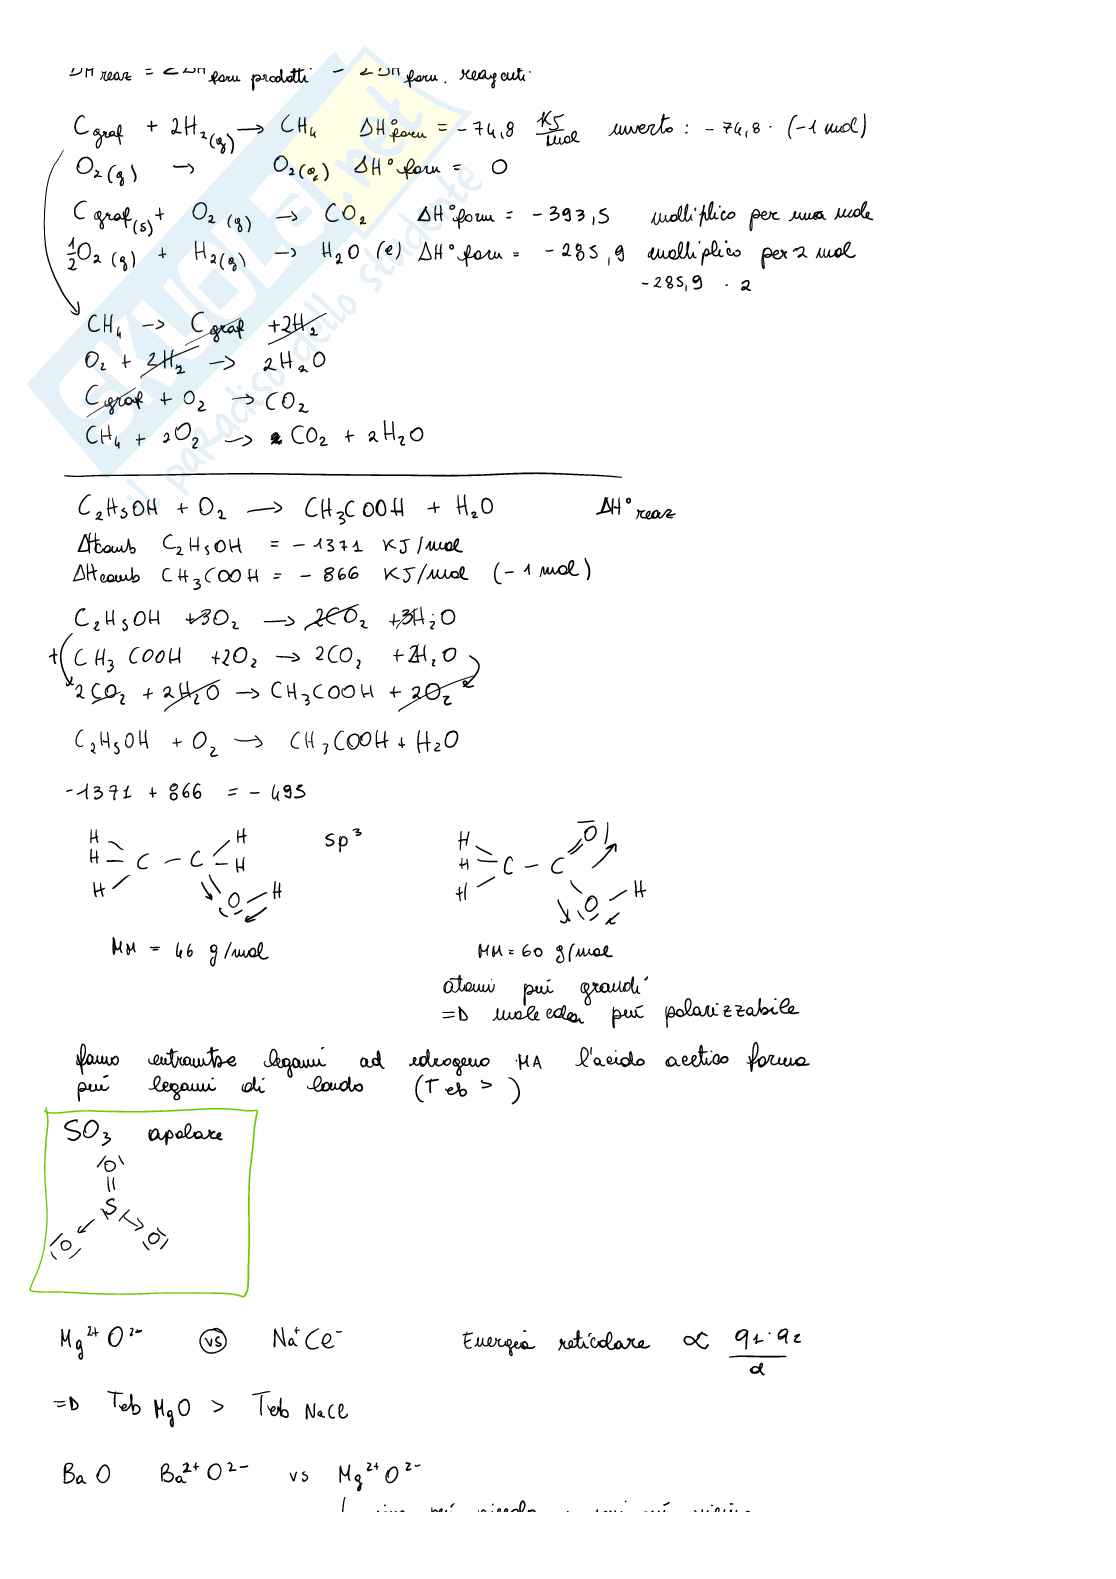 ΔH reaz = ΣΔH form prodotti - ΣΔH form. reagenti
C graf + 2H₂(g) → CH₄ ΔH°form = -74,8 KJ/mol inverto : -74,8 · (-1 mol)
O₂(g) → O₂(g) ΔH°form = 0
C graf(s) + O₂(g) → CO₂ ΔH°form = -393,5 moltiplico per una mole
½O₂(g) + H₂(g) → H₂O (l) ΔH°form = -285,9 moltiplico per 2 mol
-285,9 · 2
CH₄ → C graf + 2H₂
O₂ + 2H₂ → 2H₂O
C graf + O₂ → CO₂
CH₄ + 2O₂ → CO₂ + 2H₂O
C₂H₅OH + O₂ → CH₃COOH + H₂O ΔH°reaz
ΔHcomb C₂H₅OH = -1371 KJ/mol
ΔHcomb CH₃COOH = -866 KJ/mol (-1 mol)
C₂H₅OH + 3O₂ → 2CO₂ + 3H₂O
+ CH₃COOH + 2O₂ → 2CO₂ + 2H₂O
2CO₂ + 2H₂O → CH₃COOH + 2O₂
C₂H₅OH + O₂ → CH₃COOH + H₂O
-1371 + 866 = -495
H H sp³ H O
H C - C H H C - C
H O H H O H
MM = 46 g/mol MM = 60 g/mol
atomi più grandi
=D molecola più polarizzabile
fanno entrambe legami ad idrogeno MA l'acido acetico forma
più legami di london (Teb >)
SO₃ apolare
O
S
O O
Mg²⁺O²⁻ vs Na⁺Cl⁻ Energia reticolare ∝ q₁·q₂/d
=D Teb MgO > Teb NaCl
BaO Ba²⁺O²⁻ vs Mg²⁺O²⁻
SKUOLA.net
il paradiso dello studente